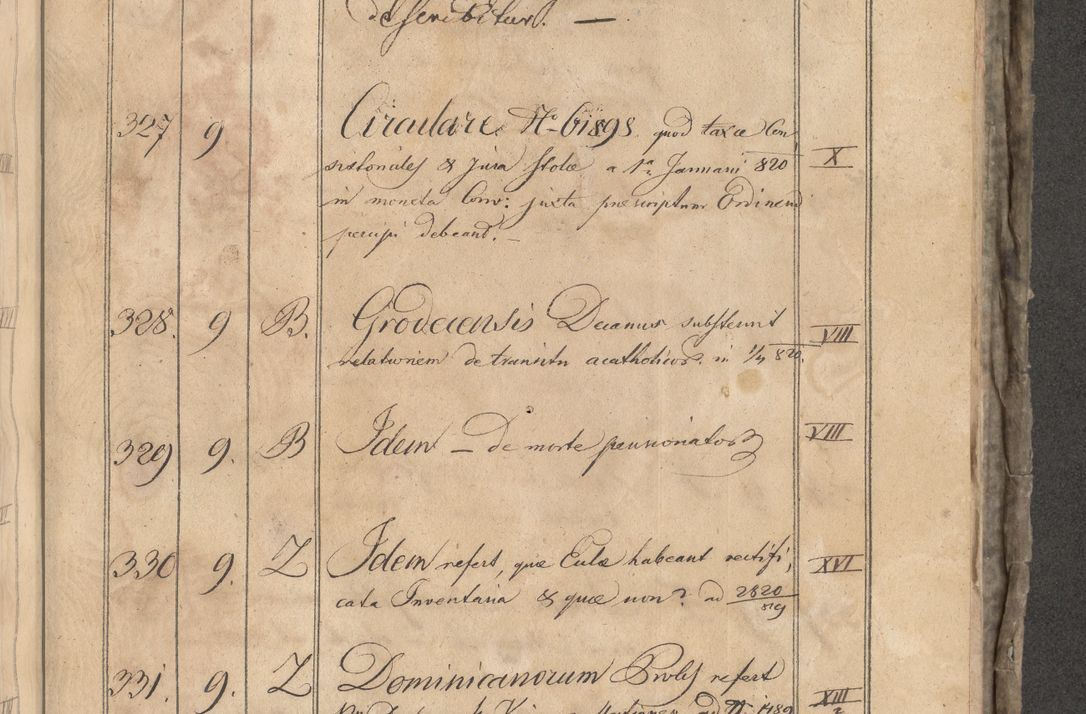 describitur. —
327 9 Circulare No 61898 quod taxæ Con
sistoriales & jura stolæ a 1a Januarii 820 X
in moneta Conv: juxta præscriptum Ordinem
percipi debeant. —
328. 9 B. Grodecensis Decanus substernit VIII
relationem de transitu acatholicor. in 1/4 820.
329 9. B Idem — De morte pensionator VIII
330 9. Z Idem refert, quæ Eccłæ habeant rectifi, XVI
cata Inventaria & quæ non? ad 2820/819
331. 9. Z Dominicanorum refert XIII